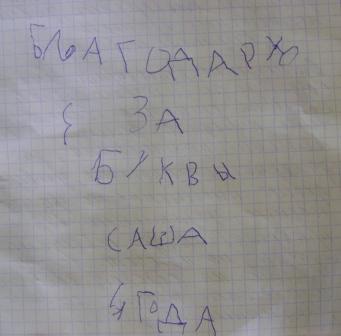 БЛАГОДАРЮ
ЗА
БУКВЫ
САША
4 ГОДА